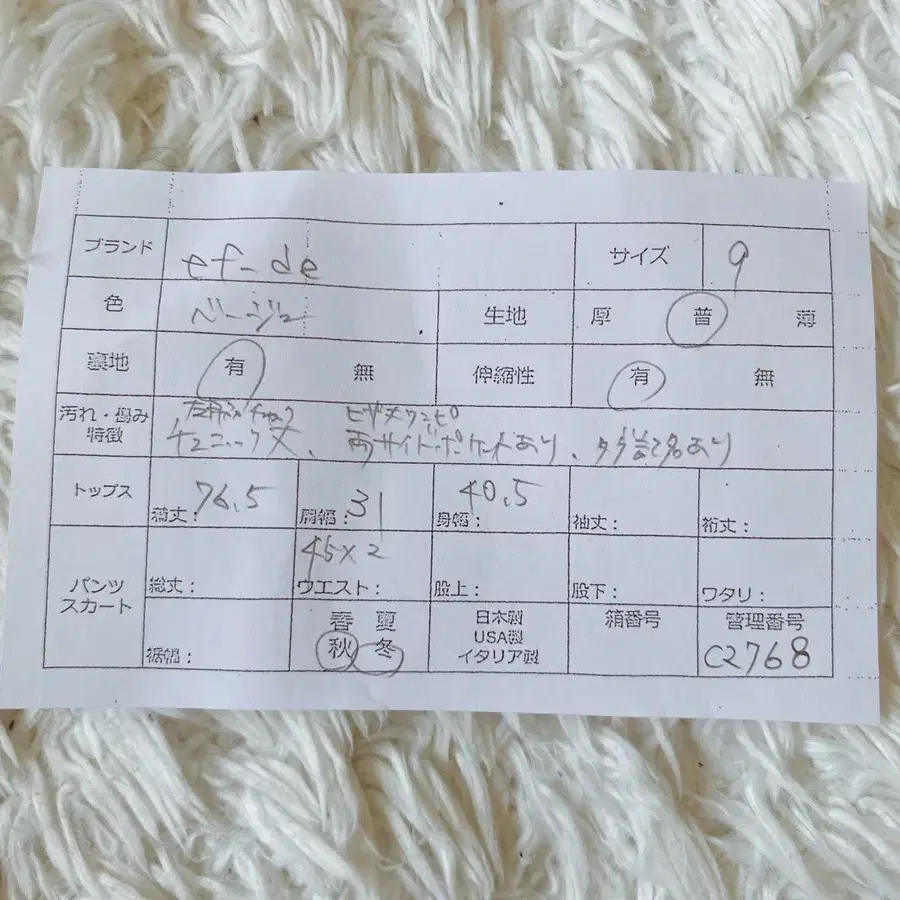 ブランド ef-de サイズ 9
色 ベージュ 生地 厚 普 薄
裏地 有 無 伸縮性 有 無
汚れ・傷み 特徴
ヒザ丈ワンピ
チュニック丈、両サイドポケットあり、タグ記名あり
トップス 総丈: 76.5 肩幅: 31 身幅: 40.5 袖丈: 裄丈:
パンツ スカート 総丈: ウエスト: 45×2 股上: 股下: ワタリ:
裾幅: 春 夏 秋 冬 日本製 USA製 イタリア製 箱番号 管理番号 C2768